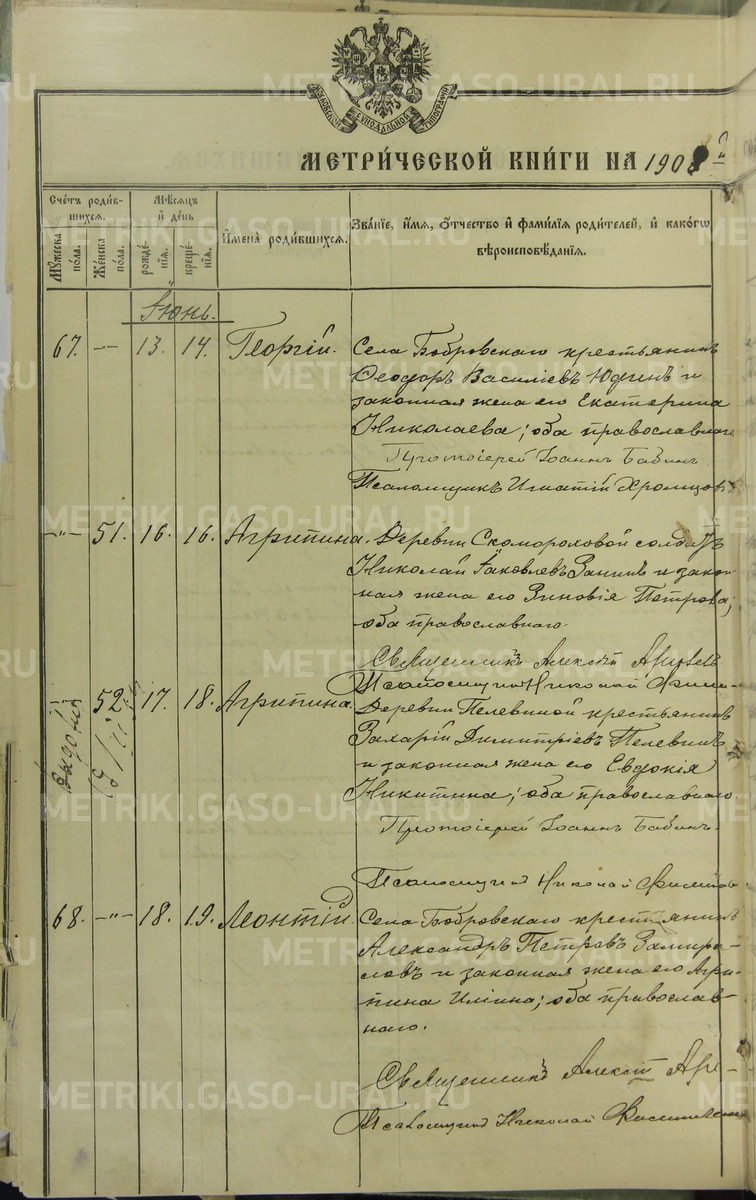 МОСКОВСКОЙ СѴНОДАЛЬНОЙ ТИПОГРАФІИ
МЕТРИ́ЧЕСКОЙ КНИ́ГИ НА 1908 й
Счетъ роди́вшихся.
Му́жеска по́ла.
Же́нска по́ла.
Мѣсяцъ и день
рожде́нїя.
креще́нїя.
Имена̀ роди́вшихся.
Зва́нїе, и́мя, ѻ́тчество и фами́лїя роди́телей, и како́гѡ вѣроисповѣ́данїя.
Іюнь.
67. — 13. 14. Георгій.
Села Бобровскаго крестьянинъ
Ѳеодоръ Василіевъ Юдинъ и
законная жена его Екатерина
Николаева; оба православнаго
Протоіерей Іоаннъ Бабинъ
Псаломщикъ Игнатій Хромцовъ
—"— 51. 16. 16. Агрипина.
Деревни Скомороховой солдатъ
Николай Іаковлевъ Занинъ и закон-
ная жена его Зиновія Петрова;
оба православнаго.
Священникъ Алексій
Псаломщикъ Николай
52. 17. 18. Агрипина.
Выдана
Деревни Пелевиной крестьянинъ
Захарій Димитріевъ Пелевинъ
и законная жена его Евдокія
Никитина; оба православнаго.
Протоіерей Іоаннъ Бабинъ.
Псаломщикъ Николай
68. —"— 18. 19. Леонтій.
Села Бобровскаго крестьянинъ
Александръ Петровъ Замира-
ловъ и законная жена его Агри-
пина Иліина; оба православ-
наго.
Священникъ Алексій
Псаломщикъ Николай
METRIKI.GASO-URAL.RU